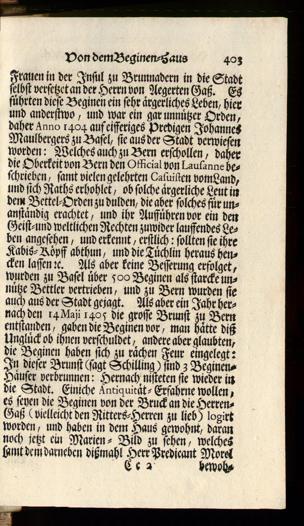 Von dem Beginen-Haus 403
Frauen in der Insul zu Brunnadern in die Stadt
selbst versetzet an der Herrn von Aegerten Gaß. Es
führten diese Beginen ein sehr ärgerliches Leben, hier
und anderstwo, und war ein gar unnützer Orden,
daher Anno 1404 auf eifferiges Predigen Johannes
Maulbergers zu Basel, sie aus der Stadt verwiesen
worden: Welches auch zu Bern erschollen, daher
die Oberkeit von Bern den Official von Lausanne be-
schrieben, samt vielen gelehrten Casuisten vom Land,
und sich Raths erhohlet, ob solche ärgerliche Leut in
dem Bettel-Orden zu dulden, die aber solches für un-
anständig erachtet, und ihr Aufführen vor ein den
Geist- und weltlichen Rechten zuwider lauffendes Le-
ben angesehen, und erkennt, erstlich: sollten sie ihre
Kabis-Köpff abthun, und die Tüchlin heraus hen-
cken lassen ꝛc. Als aber keine Besserung erfolget,
wurden zu Basel über 500 Beginen als starcke un-
nütze Bettler vertrieben, und zu Bern wurden sie
auch aus der Stadt gejagt. Als aber ein Jahr her-
nach den 14 Maji 1405 die grosse Brunst zu Bern
entstanden, gaben die Beginen vor, man hätte diß
Unglück ob ihnen verschuldet, andere aber glaubten,
die Beginen haben sich zu rächen Feur eingelegt:
In dieser Brunst (sagt Schilling) sind 3 Beginen-
Häuser verbrunnen: Hernach nisteten sie wieder in
die Stadt. Einiche Antiquität-Erfahrne wollen,
es seyen die Beginen von der Bruck an die Herren-
Gaß (vielleicht den Ritters-Herren zu lieb) logirt
worden, und haben in dem Haus gewohnt, daran
noch jetzt ein Marien-Bild zu sehen, welches
samt dem darneben dißmahl Herr Predicant Morel
Cc 2 bewoh-